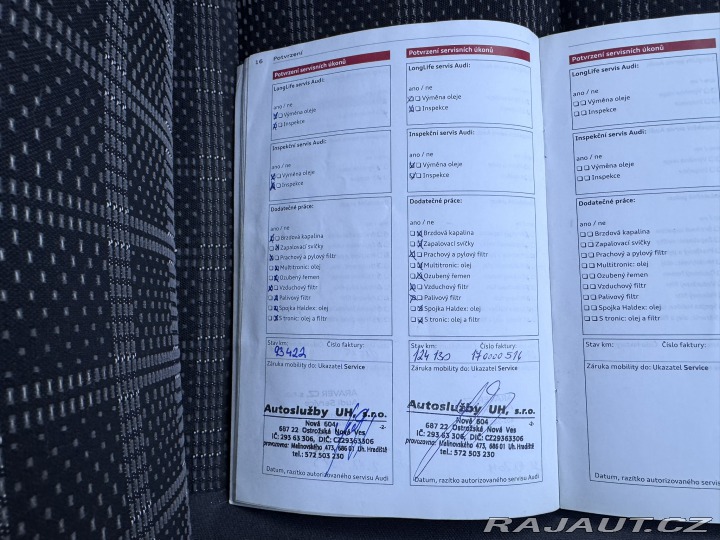 16
Potvrzení
Potvrzení servisních úkonů
LongLife servis Audi:
ano / ne
Výměna oleje
Inspekce
Inspekční servis Audi:
ano / ne
Výměna oleje
Inspekce
Dodatečné práce:
ano / ne
Brzdová kapalina
Zapalovací svíčky
Prachový a pylový filtr
Multitronic: olej
Ozubený řemen
Vzduchový filtr
Palivový filtr
Spojka Haldex: olej
S tronic: olej a filtr
Stav km: Číslo faktury:
93422
Záruka mobility do: Ukazatel Service
Autoslužby UH, s.r.o.
Nová 604
687 22 Ostrožská Nová Ves
IČ: 293 63 306, DIČ: CZ29363306
provozovna: Malinovského 473, 686 01 Uh. Hradiště
tel.: 572 503 230
Datum, razítko autorizovaného servisu Audi
Potvrzení servisních úkonů
LongLife servis Audi:
ano / ne
Výměna oleje
Inspekce
Inspekční servis Audi:
ano / ne
Výměna oleje
Inspekce
Dodatečné práce:
ano / ne
Brzdová kapalina
Zapalovací svíčky
Prachový a pylový filtr
Multitronic: olej
Ozubený řemen
Vzduchový filtr
Palivový filtr
Spojka Haldex: olej
S tronic: olej a filtr
Stav km: Číslo faktury:
124 130 170000516
Záruka mobility do: Ukazatel Service
Autoslužby UH, s.r.o.
Nová 604 -2-
687 22 Ostrožská Nová Ves
IČ: 293 63 306, DIČ: CZ29363306
provozovna: Malinovského 473, 686 01 Uh. Hradiště
tel.: 572 503 230
Datum, razítko autorizovaného servisu Audi
Potvrzení servisních úkonů
LongLife servis Audi:
ano / ne
Výměna oleje
Inspekce
Inspekční servis Audi:
ano / ne
Výměna oleje
Inspekce
Dodatečné práce:
ano / ne
Brzdová kapalina
Zapalovací svíčky
Prachový a pylový filtr
Multitronic: olej
Ozubený řemen
Vzduchový filtr
Palivový filtr
Spojka Haldex: olej
S tronic: olej a filtr
Stav km: Číslo faktury:
Záruka mobility do: Ukazatel Service
Datum, razítko autorizovaného servisu Audi
RAJAUT.CZ